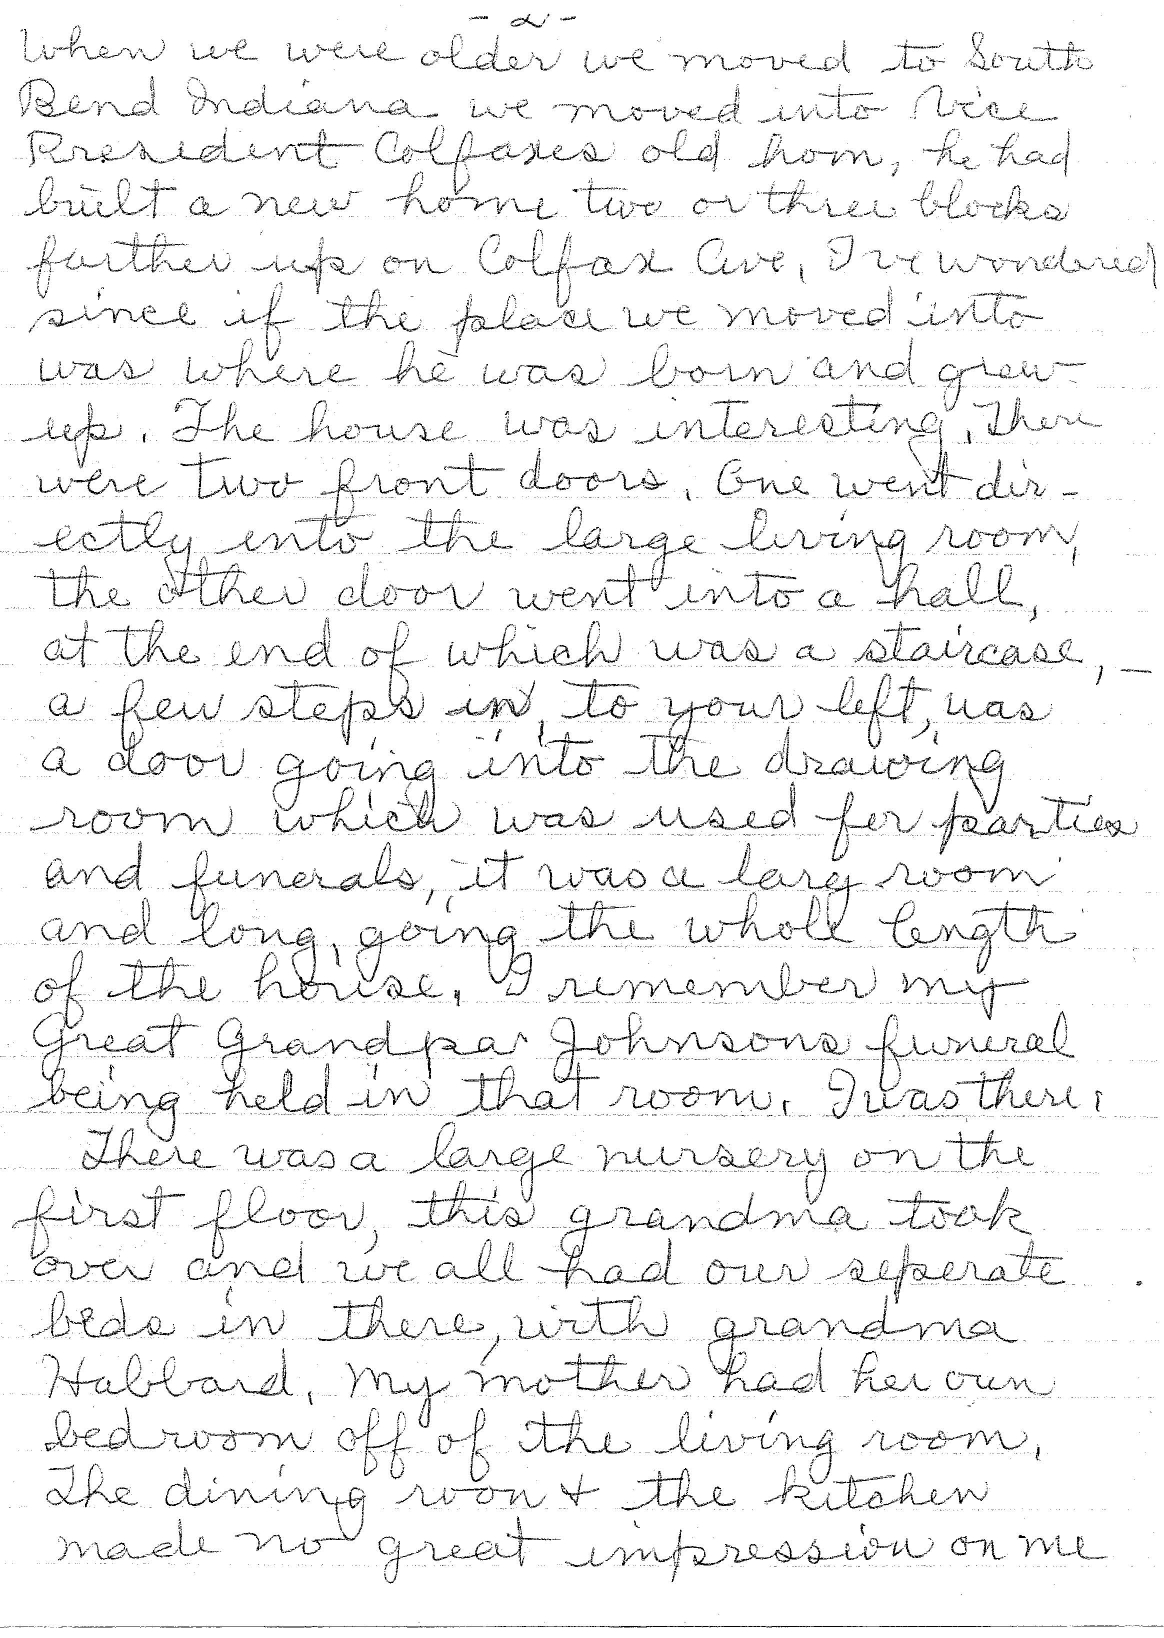 - 2 -
When we were older we moved to South
Bend Indiana we moved into Vice
President Colfaxes old hom, he had
built a new home two or three blocks
farther up on Colfax Ave, I've wondered
since if the place we moved into
was where he was born and grew
up. The house was interesting, There
were two front doors. One went dir-
ectly into the large living room,
the other door went into a hall,
at the end of which was a staircase, -
a few steps in, to your left, was
a door going into the drawing
room which was used for parties
and funerals, it was a larg room
and long, going the whole length
of the house. I remember my
Great Grandpa Johnsons funeral
being held in that room. I was there.
There was a large nursery on the
first floor, this grandma took
over and we all had our seperate
beds in there, with grandma
Habbard. My mother had her own
bedroom off of the living room.
The dining room & the kitchen
made no great impression on me